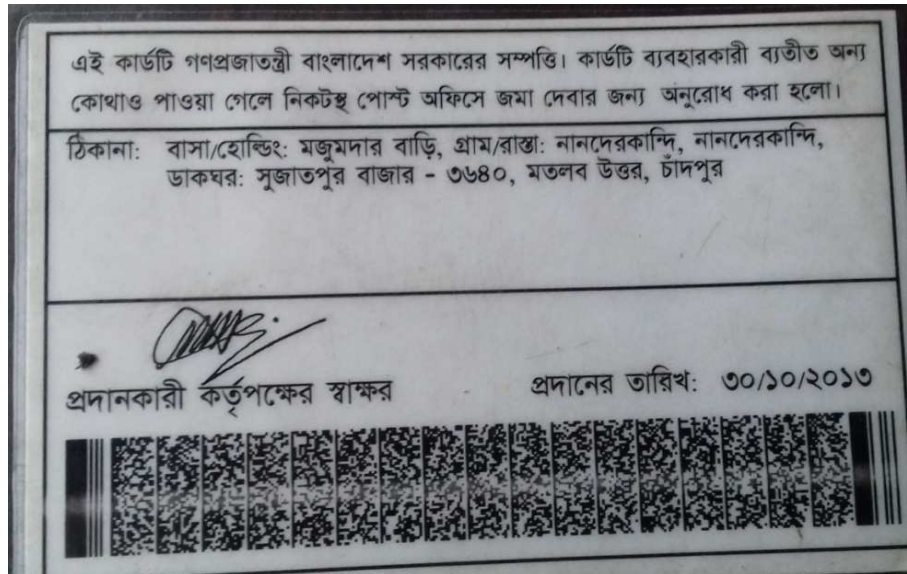 এই কার্ডটি গণপ্রজাতন্ত্রী বাংলাদেশ সরকারের সম্পত্তি। কার্ডটি ব্যবহারকারী ব্যতীত অন্য
কোথাও পাওয়া গেলে নিকটস্থ পোস্ট অফিসে জমা দেবার জন্য অনুরোধ করা হলো।
ঠিকানা: বাসা/হোল্ডিং: মজুমদার বাড়ি, গ্রাম/রাস্তা: নানদেরকান্দি, নানদেরকান্দি,
ডাকঘর: সুজাতপুর বাজার - ৩৬৪০, মতলব উত্তর, চাঁদপুর
প্রদানকারী কর্তৃপক্ষের স্বাক্ষর প্রদানের তারিখ: ৩০/১০/২০১৩